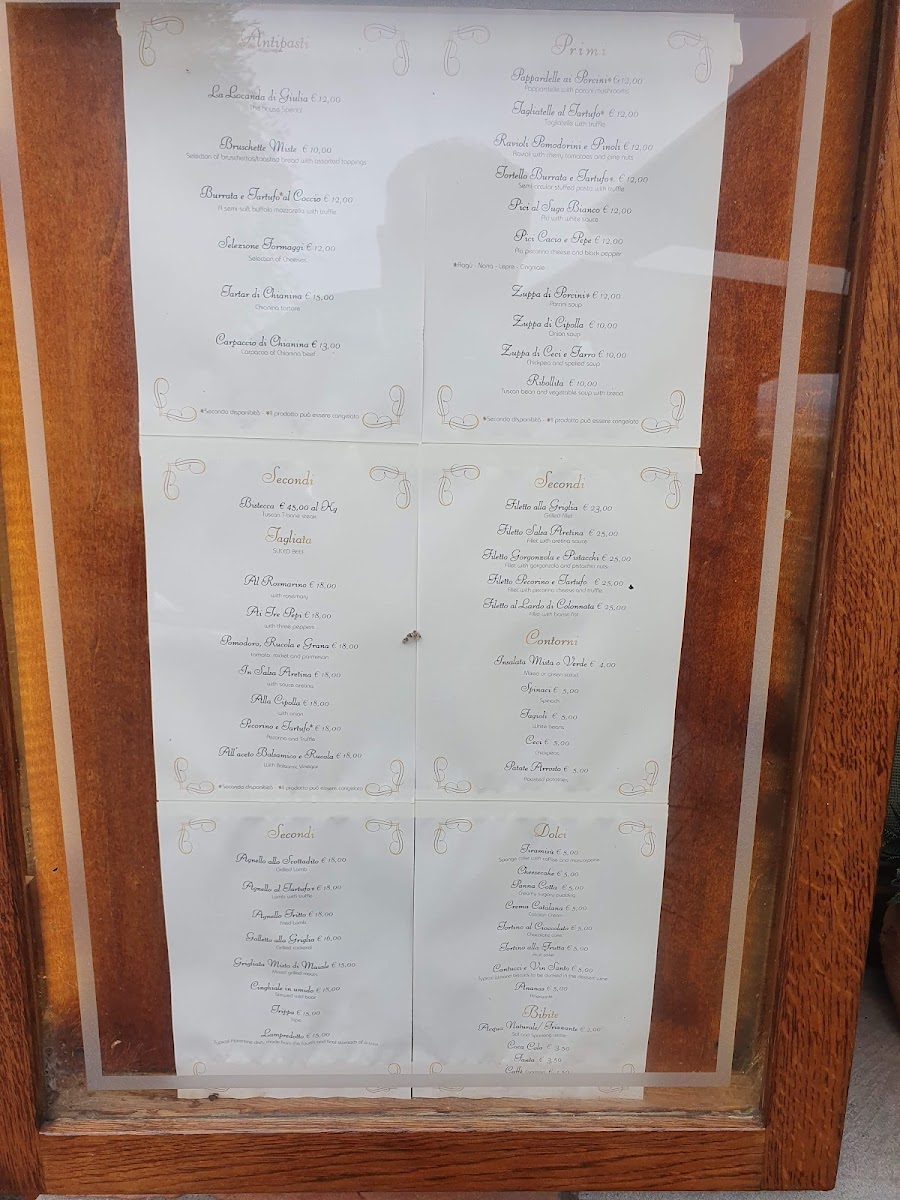 Antipasti
La Locanda di Giulia € 12,00
The House Special
Bruschette Miste € 10,00
Selection of bruschetta/toasted bread with assorted toppings
Burrata e Tartufo*al Coccio € 12,00
A semi soft buffalo mozzarella with truffle
Selezione Formaggi € 12,00
Selection of Cheeses
Tartar di Chianina € 15,00
Chianina tartare
Carpaccio di Chianina € 13,00
Carpaccio of Chianina beef
*Secondo disponibilità - *Il prodotto può essere congelato
Primi
Pappardelle ai Porcini* € 12,00
Pappardelle with porcini mushrooms
Tagliatelle al Tartufo* € 12,00
Tagliatelle with truffle
Ravioli Pomodorini e Pinoli € 12,00
Ravioli with cherry tomatoes and pine nuts
Tortello Burrata e Tartufo* € 12,00
Semi circular stuffed pasta with truffle
Pici al Sugo Bianco € 12,00
Pici with white sauce
Pici Cacio e Pepe € 12,00
Pici pecorino cheese and black pepper
*Ragù : Nana - Lepre - Cinghiale
Zuppa di Porcini* € 12,00
Porcini soup
Zuppa di Cipolla € 10,00
Onion soup
Zuppa di Ceci e Farro € 10,00
Chickpea and spelled soup
Ribollita € 10,00
Tuscan bean and vegetable soup with bread
*Secondo disponibilità - *Il prodotto può essere congelato
Secondi
Bistecca € 45,00 al Kg
Tuscan T-bone steak
Tagliata
SLICED BEEF
Al Rosmarino € 18,00
with rosemary
Ai Tre Pepi € 18,00
with three peppers
Pomodoro, Rucola e Grana € 18,00
tomato, rocket and parmesan
In Salsa Aretina € 18,00
with sauce aretina
Alla Cipolla € 18,00
with onion
Pecorino e Tartufo* € 18,00
Pecorino and Truffle
All'aceto Balsamico e Rucola € 18,00
With Balsamic Vinegar
*Secondo disponibilità - *Il prodotto può essere congelato
Secondi
Filetto alla Griglia € 23,00
Grilled fillet
Filetto Salsa Aretina € 25,00
Fillet with aretina sauce
Filetto Gorgonzola e Pistacchi € 25,00
Fillet with gorgonzola and pistachio nuts
Filetto Pecorino e Tartufo € 25,00
Fillet with pecorino cheese and truffle
Filetto al Lardo di Colonnata € 25,00
Contorni
Insalata Mista o Verde € 4,00
Mixed or green salad
Spinaci € 5,00
Spinach
Fagioli € 5,00
White beans
Ceci € 5,00
chickpeas
Patate Arrosto € 5,00
Roasted potatoes
Secondi
Agnello allo Scottadito € 18,00
Grilled Lamb
Agnello al Tartufo* € 18,00
Lamb with truffle
Agnello Fritto € 18,00
fried Lamb
Galletto alla Griglia € 16,00
Grilled cockerel
Grigliata Mista di Maiale € 15,00
Mixed grilled meats
Cinghiale in umido € 18,00
Stewed wild boar
Trippa € 15,00
Tripe
Lampredotto € 15,00
Dolci
Tiramisù € 5,00
Sponge cake with coffee and mascarpone
Cheesecake € 5,00
Panna Cotta € 5,00
Creamy sugary pudding
Crema Catalana € 5,00
Catalan Cream
Tortino al Cioccolato € 5,00
Chocolate cake
Tortino alla Frutta € 5,00
Fruit cake
Cantucci e Vin Santo € 5,00
Typical almond biscuits to be dunked in the dessert wine
Ananas € 5,00
Pineapple
Bibite
Acqua Naturale/ Frizzante € 2,00
Still and Sparkling Water
Coca Cola € 3,50
Fanta € 3,50
Caffè